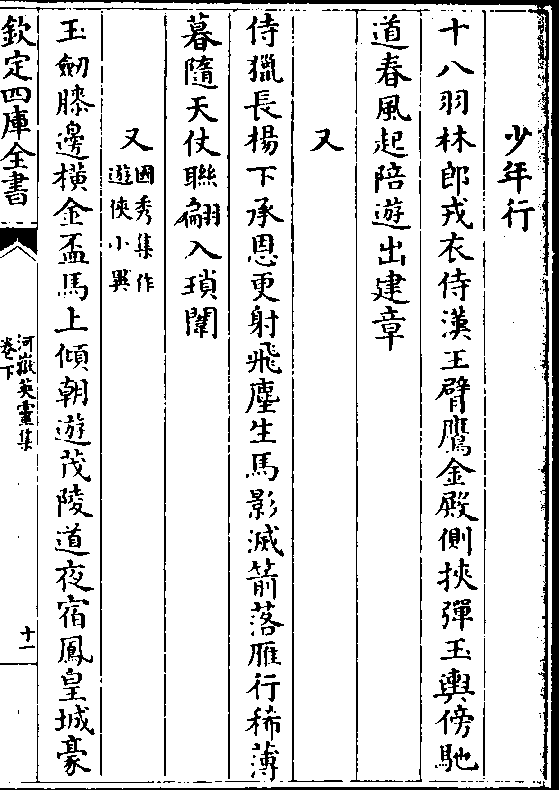 少年行
十八羽林郎戎衣侍漢王臂鷹金殿側挾彈玉輿傍馳
道春風起陪遊出建章
又
侍獵長楊下承恩更射飛塵生馬影滅箭落雁行稀薄
暮隨天仗聯翩入瑣闈
又國秀集作遊俠小異
玉劒膝邊橫金盃馬上傾朝遊茂陵道夜宿鳳皇城豪
欽定四庫全書
河嶽英靈集
卷下
十一